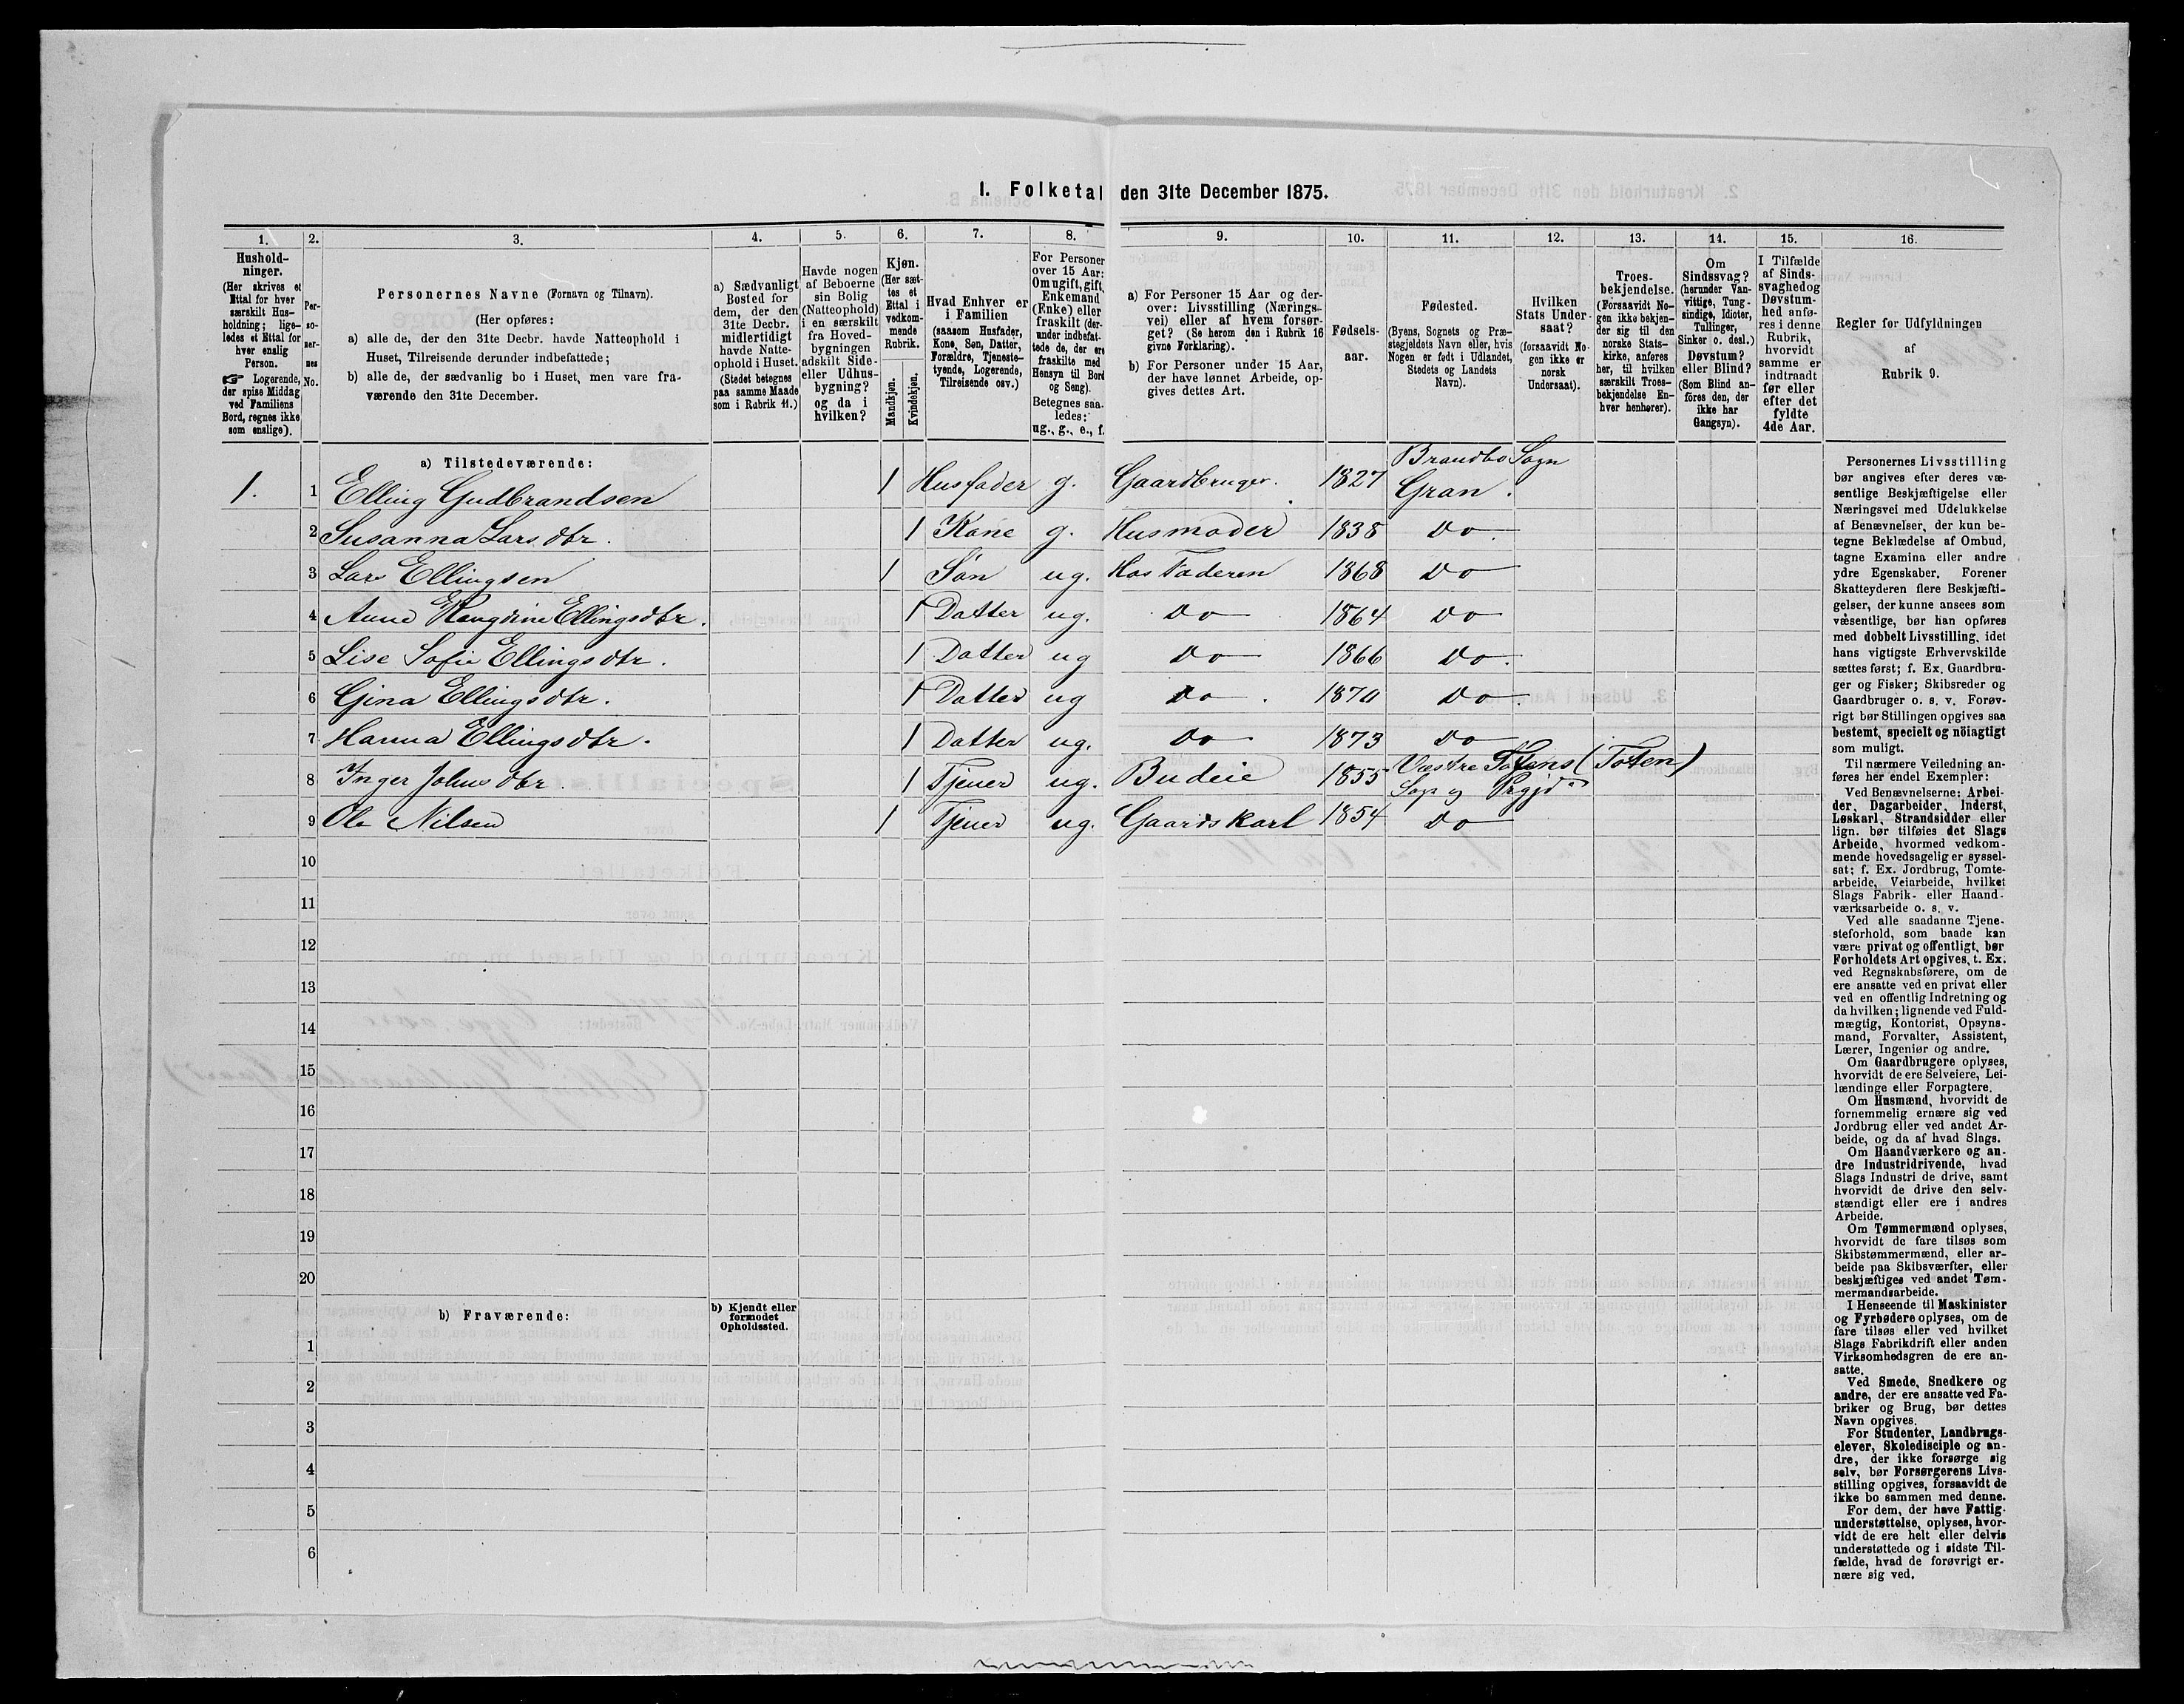 1. Folketal den 31te December 1875.
1. 2. 3. 4. 5. 6. 7. 8. 9. 10. 11. 12. 13. 14. 15. 16.
Hushold-
ninger.
(Her skrives et
Ettal for hver
særskilt Hus-
holdning; lige-
ledes et Ettal for
hver enslig
Person.
☞ Logerende,
der spise Middag
ved Familiens
Bord, regnes ikke
som enslige).
Per-
so-
ner-
nes
No.
Personernes Navne (Fornavn og Tilnavn).
(Her opføres:
a) alle de, der den 31te Decbr. havde Natteophold i
Huset, Tilreisende derunder indbefattede;
b) alle de, der sædvanlig bo i Huset, men vare fra-
værende den 31te December.
a) Sædvanligt
Bosted for
dem, der den
31te Decbr.
midlertidigt
havde Natte-
ophold i Huset.
(Stedet betegnes
paa samme Maade
som i Rubrik 11.)
Havde nogen
af Beboerne
sin Bolig
(Natteophold)
i en særskilt
fra Hoved-
bygningen
adskilt Side-
eller Udhus-
bygning?
og da i
hvilken?
Kjøn.
(Her sæt-
tes et
Ettal i
vedkom-
mende
Rubrik.
Mandkjøn.
Kvindekjøn.
Hvad Enhver er
i Familien
(saasom Husfader,
Kone, Søn, Datter,
Forældre, Tjeneste-
tyende, Logerende,
Tilreisende osv.)
For Personer
over 15 Aar:
Om ugift, gift,
Enkemand
(Enke) eller
fraskilt (der-
under indbefat-
tede de, der ere
fraskilte med
Hensyn til Bord
og Seng).
Betegnes saa-
ledes:
ug., g., e., f.
a) For Personer 15 Aar og der-
over: Livsstilling (Nærings-
vei) eller af hvem forsør-
get? (Se herom den i Rubrik 16
givne Forklaring).
b) For Personer under 15 Aar,
der have lønnet Arbeide, op-
gives dettes Art.
Fødsels-
aar.
Fødested.
(Byens, Sognets og Præ-
stegjeldets Navn eller, hvis
Nogen er født i Udlandet,
Stedets og Landets
Navn).
Hvilken
Stats Under-
saat?
(forsaavidt No-
gen ikke er
norsk
Undersaat).
Troes-
bekjendelse.
(Forsaavidt No-
gen ikke bekjen-
der sig til den
norske Stats-
kirke, anføres
her, til hvilken
særskilt Troes-
bekjendelse En-
hver henhører).
Om
Sindssvag?
(herunder Van-
vittige, Tung-
sindige, Idioter,
Tullinger,
Sinker o. desl.)
Døvstum?
eller Blind?
(Som Blind an-
føres den, der
ikke har
Gangsyn).
I Tilfælde
af Sinds-
svaghed og
Døvstum-
hed anfø-
res i denne
Rubrik,
hvorvidt
samme er
indtraadt
før eller
efter det
fyldte
4de Aar.
Regler for Udfyldningen
af
Rubrik 9.
a) Tilstedeværende:
Brandbo Sogn
1. 1 Elling Gudbrandsen 1 Husfader g. Gaardbruger. 1827 Gran.
2 Susanna Larsdtr. 1 Kone g. Husmoder 1838 Do.
3 Lars Ellingsen 1 Søn ug. Hos Faderen 1868 Do
4 Anne Rangdine Ellingsdtr. 1 Datter ug. Do 1864 Do
5 Lise Sofie Ellingsdtr. 1 Datter ug Do 1866 Do.
6 Gina Ellingsdtr. 1 Datter ug Do. 1870 Do.
7 Hanna Ellingsdtr. 1 Datter ug. Do 1873 Do
8 Inger Johnsdtr. 1 Tjener ug. Budeie 1855 Vestre Totens (Toten)
Sogn og Prgjd
9 Ole Nilsen 1 Tjener ug. Gaardskarl 1854 Do
10
11
12
13
14
15
16
17
18
19
20
b) Fraværende:
b) Kjendt eller
formodet
Opholdssted.
1
2
3
4
5
6
Personernes Livsstilling
bør angives efter deres væ-
sentlige Beskjæftigelse eller
Næringsvei med Udelukkelse
af Benævnelser, der kun be-
tegne Beklædelse af Ombud,
tagne Examina eller andre
ydre Egenskaber. Forener
Skatteyderen flere Beskjæfti-
gelser, der kunne ansees som
væsentlige, bør han opføres
med dobbelt Livsstilling, idet
hans vigtigste Erhvervskilde
sættes først; f. Ex. Gaardbru-
ger og Fisker; Skibsreder og
Gaardbruger o. s. v. Forøv-
rigt bør Stillingen opgives saa
bestemt, specielt og nöiagtigt
som muligt.
Til nærmere Veiledning an-
føres her endel Exempler:
Ved Benævnelserne: Arbei-
der, Dagarbeider, Inderst,
Løskarl, Strandsidder eller
lign. bør tilføies det Slags
Arbeide, hvormed vedkom-
mende hovedsagelig er syssel-
sat; f. Ex. Jordbrug, Tomte-
arbeide, Veiarbeide, hvilket
Slags Fabrik- eller Haand-
værksarbeide o. s. v.
Ved alle saadanne Tjene-
steforhold, som baade kan
være privat og offentligt, bør
Forholdets Art opgives, t. Ex.
ved Regnskabsførere, om de
ere ansatte ved en privat eller
ved en offentlig Indretning og
da hvilken; lignende ved Fuld-
mægtig, Kontorist, Opsyns-
mand, Forvalter, Assistent,
Lærer, Ingeniør og andre.
Om Gaardbrugere oplyses,
hvorvidt de ere Selveiere, Lei-
lændinge eller Forpagtere.
Om Husmænd, hvorvidt de
fornemmelig ernære sig ved
Jordbrug eller ved andet Ar-
beide, og da af hvad Slags.
Om Haandværkere og an-
dre Industridrivende, hvad
Slags Industri de drive, samt
hvorvidt de drive den selv-
stændigt eller ere i andres
Arbeide.
Om Tømmermænd oplyses,
hvorvidt de fare tilsøs som
Skibstømmermænd, eller ar-
beide paa Skibsværfter, eller
beskjæftiges ved andet Tøm-
mermandsarbeide.
I Henseende til Maskinister
og Fyrbødere oplyses, om de
fare tilsøs eller ved hvilket
Slags Fabrikdrift eller anden
Virksomhedsgren de ere an-
satte.
Ved Smede, Snedkere og
andre, der ere ansatte ved Fa-
briker og Brug, bør dettes
Navn opgives.
For Studenter, Landbrugs-
elever, Skoledisciple og an-
dre, der ikke forsørge sig
selv, bør Forsørgerens Livs-
stilling opgives, forsaavidt de
ikke bo sammen med denne.
For dem, der have Fattig-
understøttelse, oplyses, hvor-
vidt de ere helt eller delvis
understøttede og i sidste Til-
fælde, hvad de forøvrigt er-
nære sig ved.